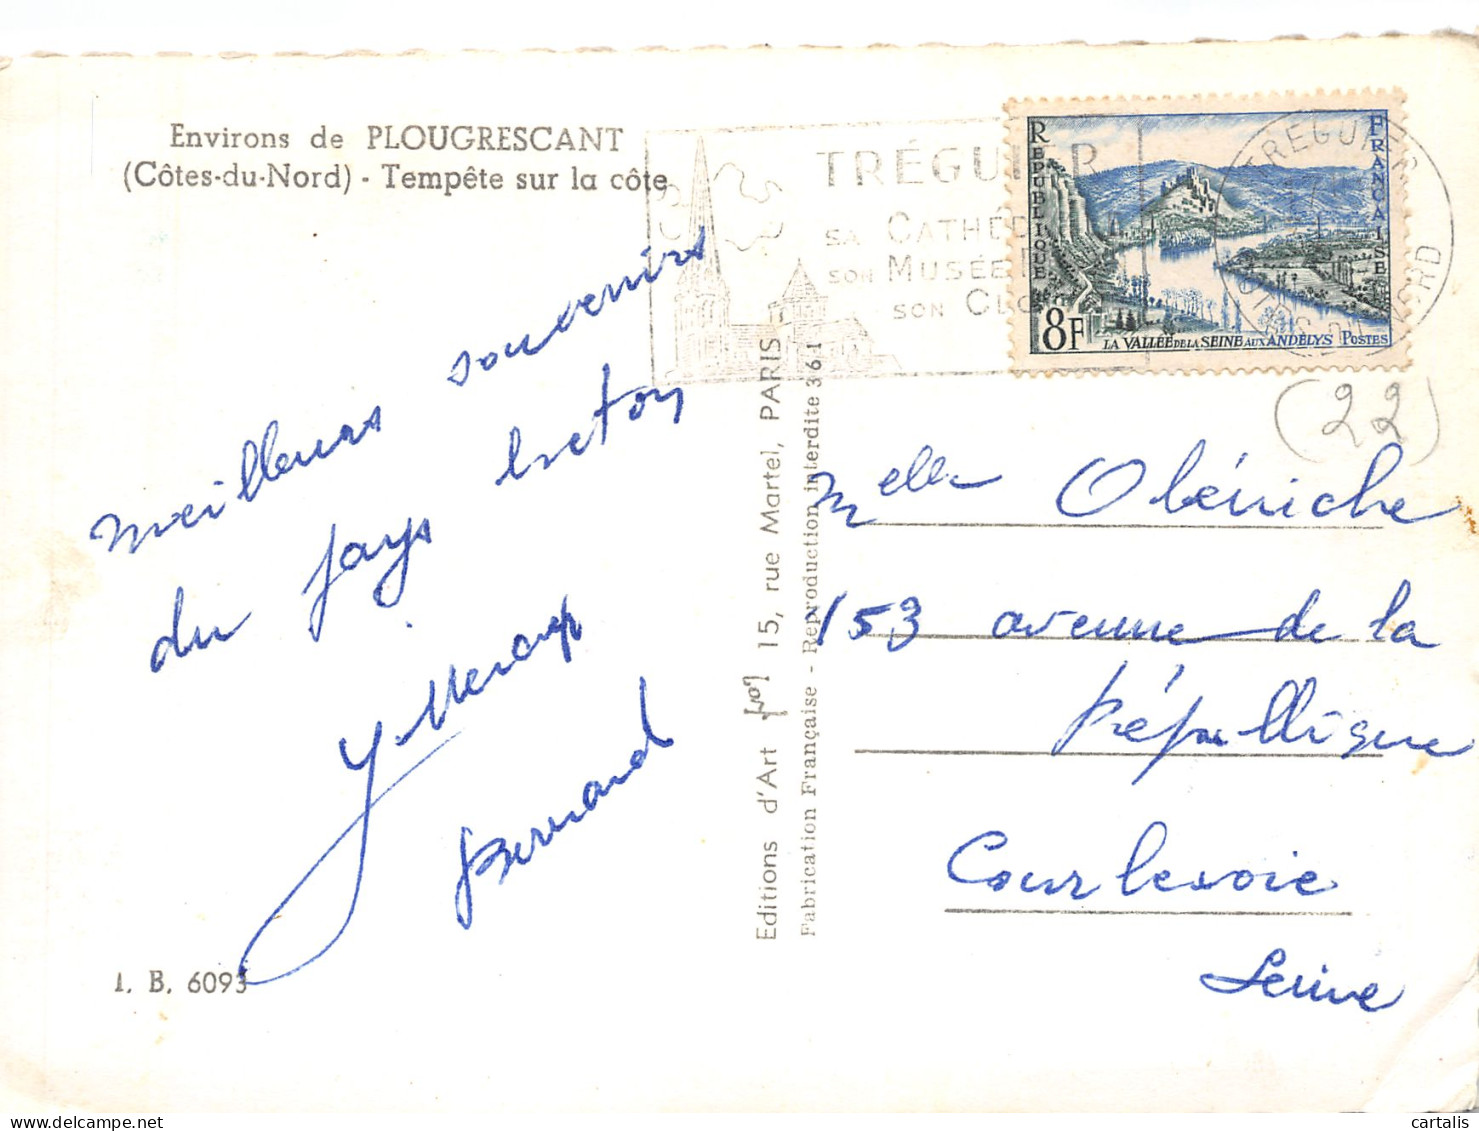 Environs de PLOUGRESCANT
(Côtes-du-Nord) - Tempête sur la côte
TRÉGUIER
SA CATHÉD
SON MUSÉE
SON CLO
RÉPUBLIQUE
FRANÇAISE
8F
LA VALLÉE DE LA SEINE AUX ANDELYS POSTES
TREGUIER
COTES DU NORD
(22)
meilleurs souvenirs
du pays breton
Bernard
I. B. 6093
Editions d'Art 15, rue Martel, PARIS
Fabrication Française - Reproduction interdite 361
Melle
153 avenue de la
République
Courbevoie
Seine
cartalis